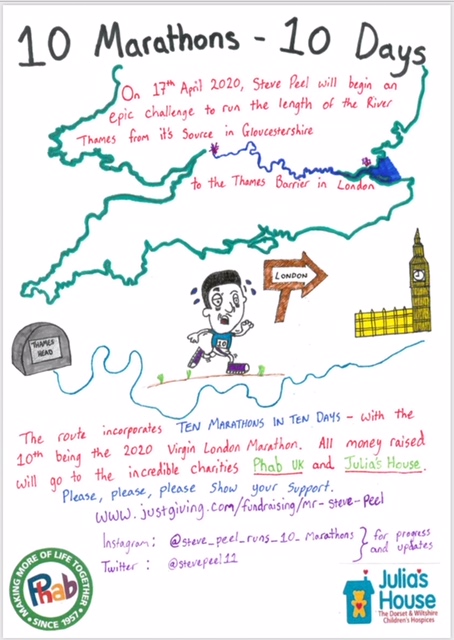 10 Marathons - 10 Days
On 17th April 2020, Steve Peel will begin an
epic challenge to run the length of the River
Thames from it's Source in Gloucestershire
to the Thames Barrier in London
LONDON
THAMES
HEAD
10
The route incorporates TEN MARATHONS IN TEN DAYS - with the
10th being the 2020 Virgin London Marathon. All money raised
will go to the incredible charities Phab UK and Julia's House.
Please, please, please show your support.
www.justgiving.com/fundraising/mr-steve-peel
Instagram: @steve_peel_runs_10_marathons } for progress
Twitter: @stevepeel12 and updates
MAKING MORE OF LIFE TOGETHER
Phab
• SINCE 1957 •
Julia's
House
The Dorset & Wiltshire
Children's Hospices